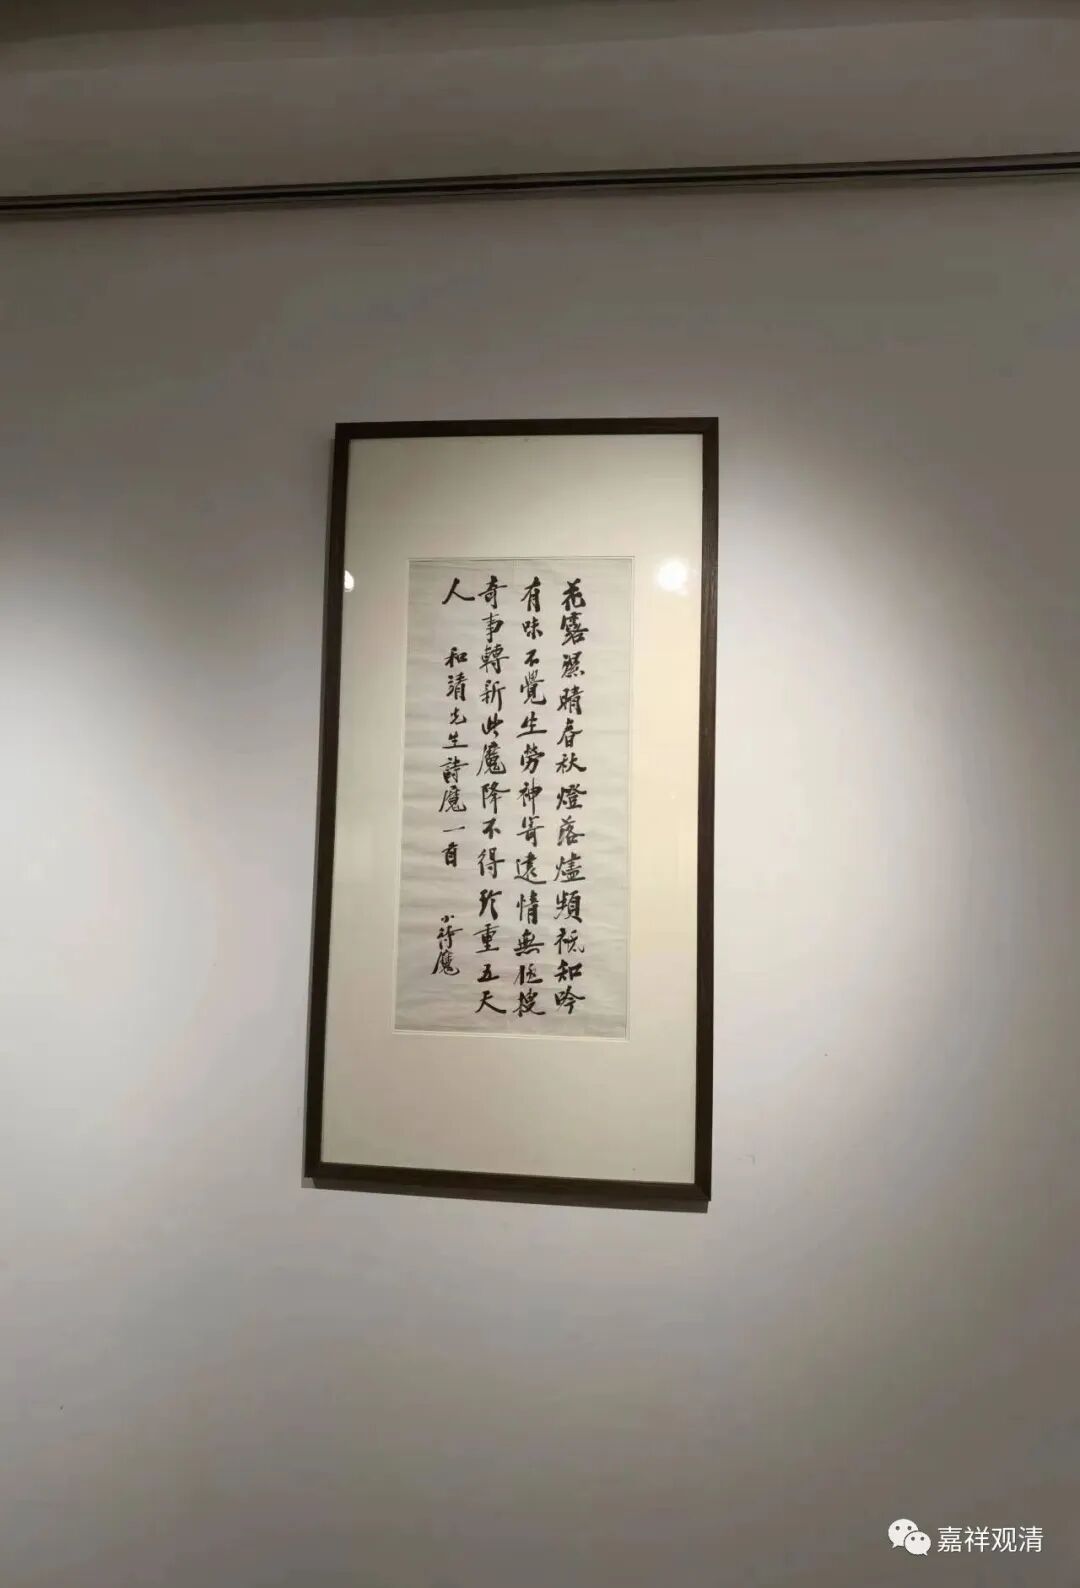 花露濕晴春秋燈落燼頻祇知吟
有味不覺生勞神寄遠情無極搜
奇事轉新此魔降不得珍重五天
人 和清先生詩魔一首
嘉祥观清